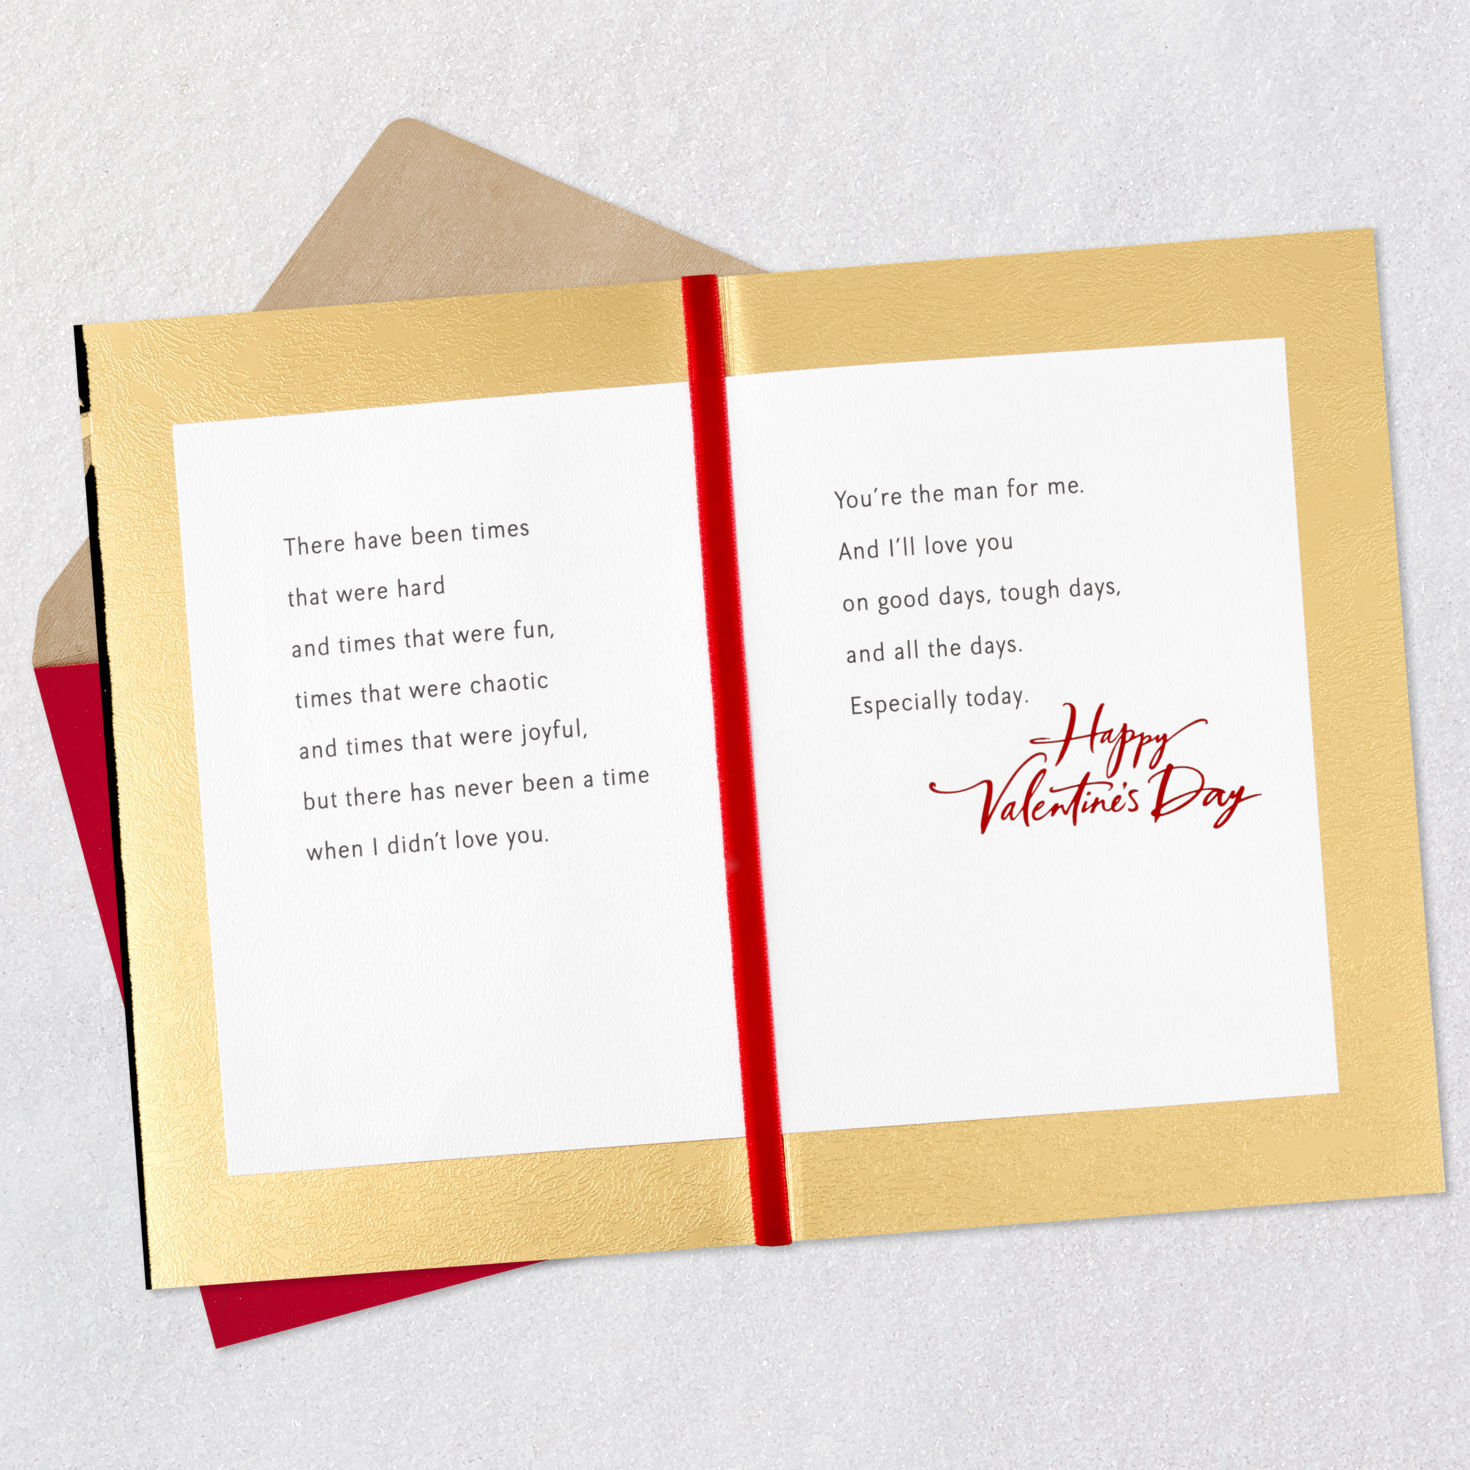 There have been times
that were hard
and times that were fun,
times that were chaotic
and times that were joyful,
but there has never been a time
when I didn’t love you.
You’re the man for me.
And I’ll love you
on good days, tough days,
and all the days.
Especially today.
Happy
Valentine's Day